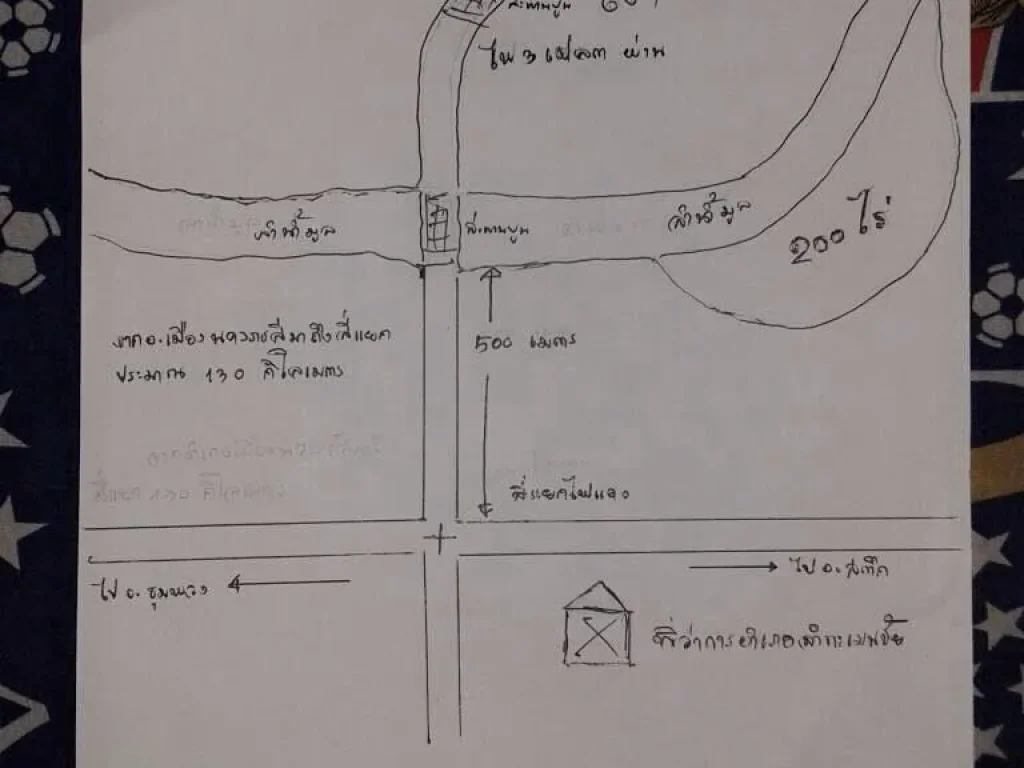 สะพานปูน
ไฟ 3 เฟสผ่าน
ลำน้ำมูล
สะพานปูน
ลำน้ำมูล
200 ไร่
จากอ.เมืองนครราชสีมาถึงสี่แยก
ประมาณ 130 กิโลเมตร
500 เมตร
สี่แยกไฟแดง
ไป อ.ชุมพวง
ไป อ.สตึก
ที่ว่าการอำเภอลำทะเมนชัย